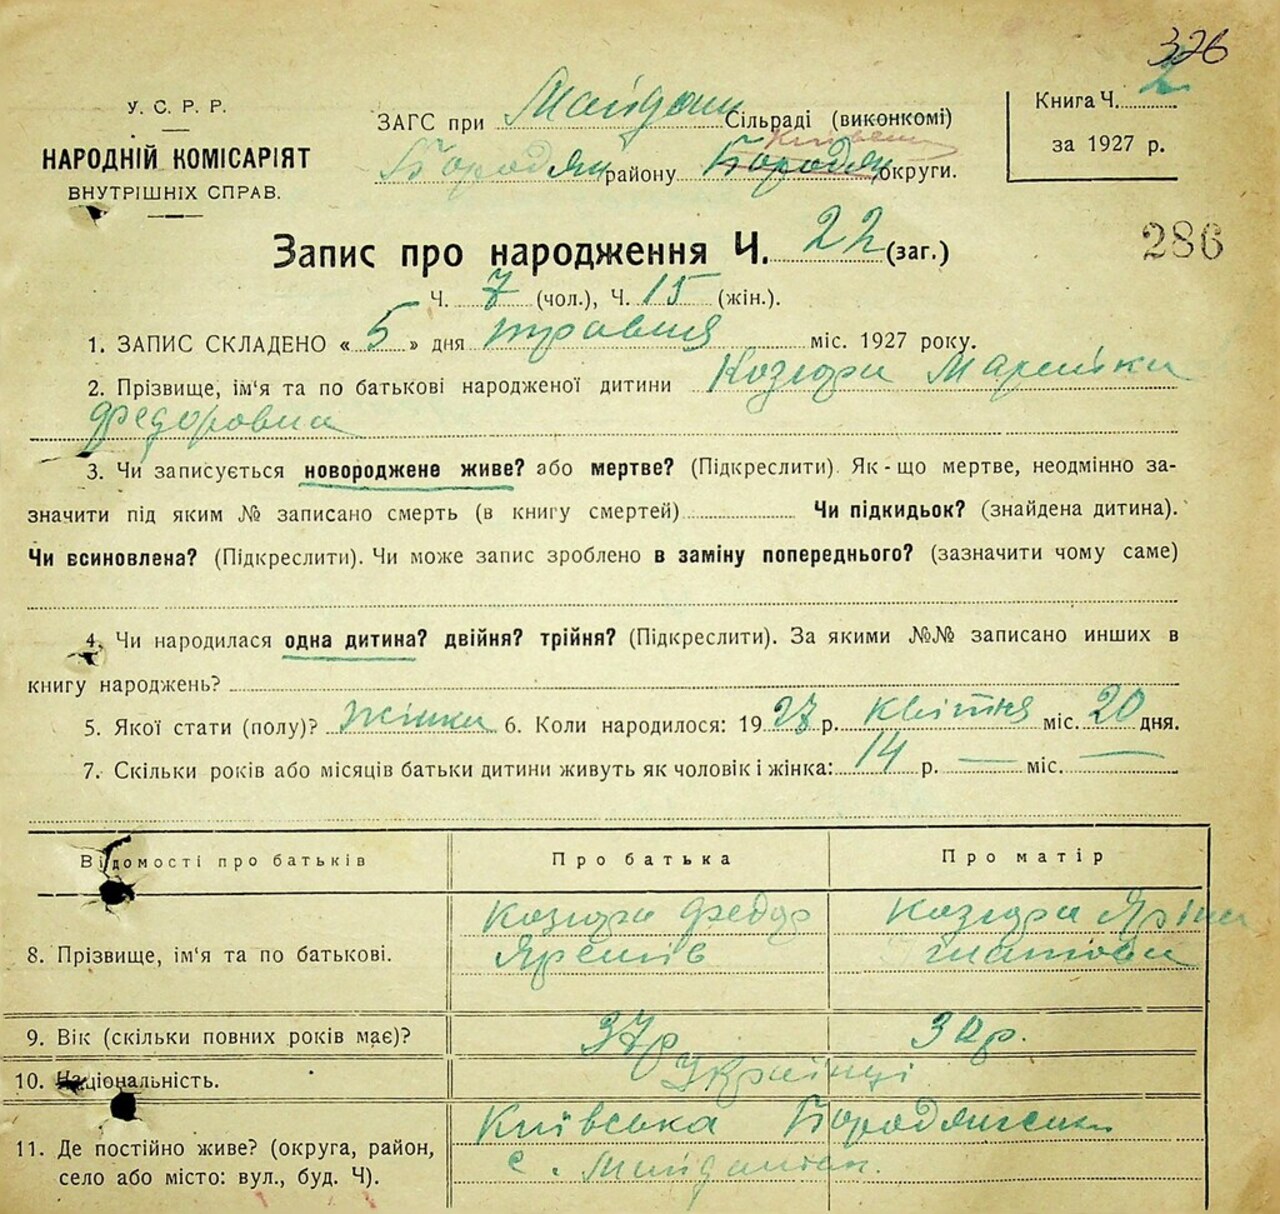 326
У. С. Р. Р.
НАРОДНІЙ КОМІСАРІЯТ
ВНУТРІШНІХ СПРАВ.
ЗАГС при Сільраді (виконкомі)
Бородян району Бородян округи.
Книга Ч. 2
за 1927 р.
286
Запис про народження Ч. 22 (заг.)
Ч. 7 (чол.), Ч. 15 (жін.).
1. ЗАПИС СКЛАДЕНО « 5 » дня травня міс. 1927 року.
2. Прізвище, ім'я та по батькові народженої дитини Козюри Марійки
Федоровна
3. Чи записується новороджене живе? або мертве? (Підкреслити). Як-що мертве, неодмінно за-
значити під яким № записано смерть (в книгу смертей) Чи підкидьок? (знайдена дитина).
Чи всиновлена? (Підкреслити). Чи може запис зроблено в заміну попереднього? (зазначити чому саме)
4. Чи народилася одна дитина? двійня? трійня? (Підкреслити). За якими №№ записано инших в
книгу народжень?
5. Якої стати (полу)? жінки 6. Коли народилося: 1927 р. квітня міс. 20 дня.
7. Скільки років або місяців батьки дитини живуть як чоловік і жінка: 14 р. — міс. —
Відомості про батьків Про батька Про матір
8. Прізвище, ім'я та по батькові. Козюра Федор Козюра Яріна
Яремів
9. Вік (скільки повних років має)? 37р 30р.
10. Національність. Українці
11. Де постійно живе? (округа, район, Київська Бородянська
село або місто: вул., буд. Ч). с.